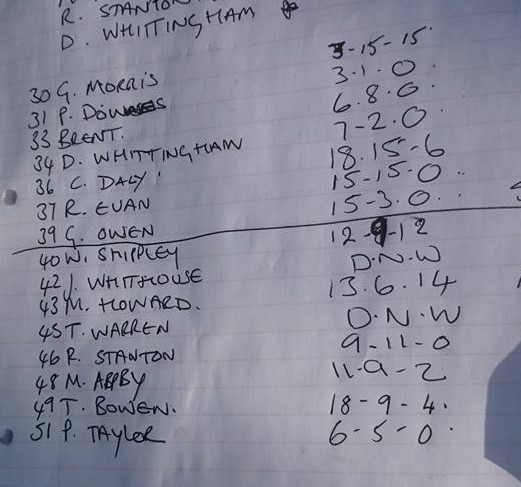 R. STANTON
D. WHITTINGHAM
3-15-15
30 G. MORRIS 3.1.0
31 P. DOWNES 6.8.0
33 BRENT. 7-2.0
34 D. WHITTINGHAM 18.15-6
36 C. DALY 15-15.0
37 R. EVAN 15-3.0.
39 G. OWEN 12-9-12
40 W. SHIPPLEY D.N.W
42 J. WHITHOUSE 13.6.14
43 M. HOWARD. D.N.W
45 T. WARREN 9-11-0
46 R. STANTON 11-9-2
48 M. APPBY 18-9-4.
49 T. BOWEN. 6-5-0.
51 P. TAYLOR